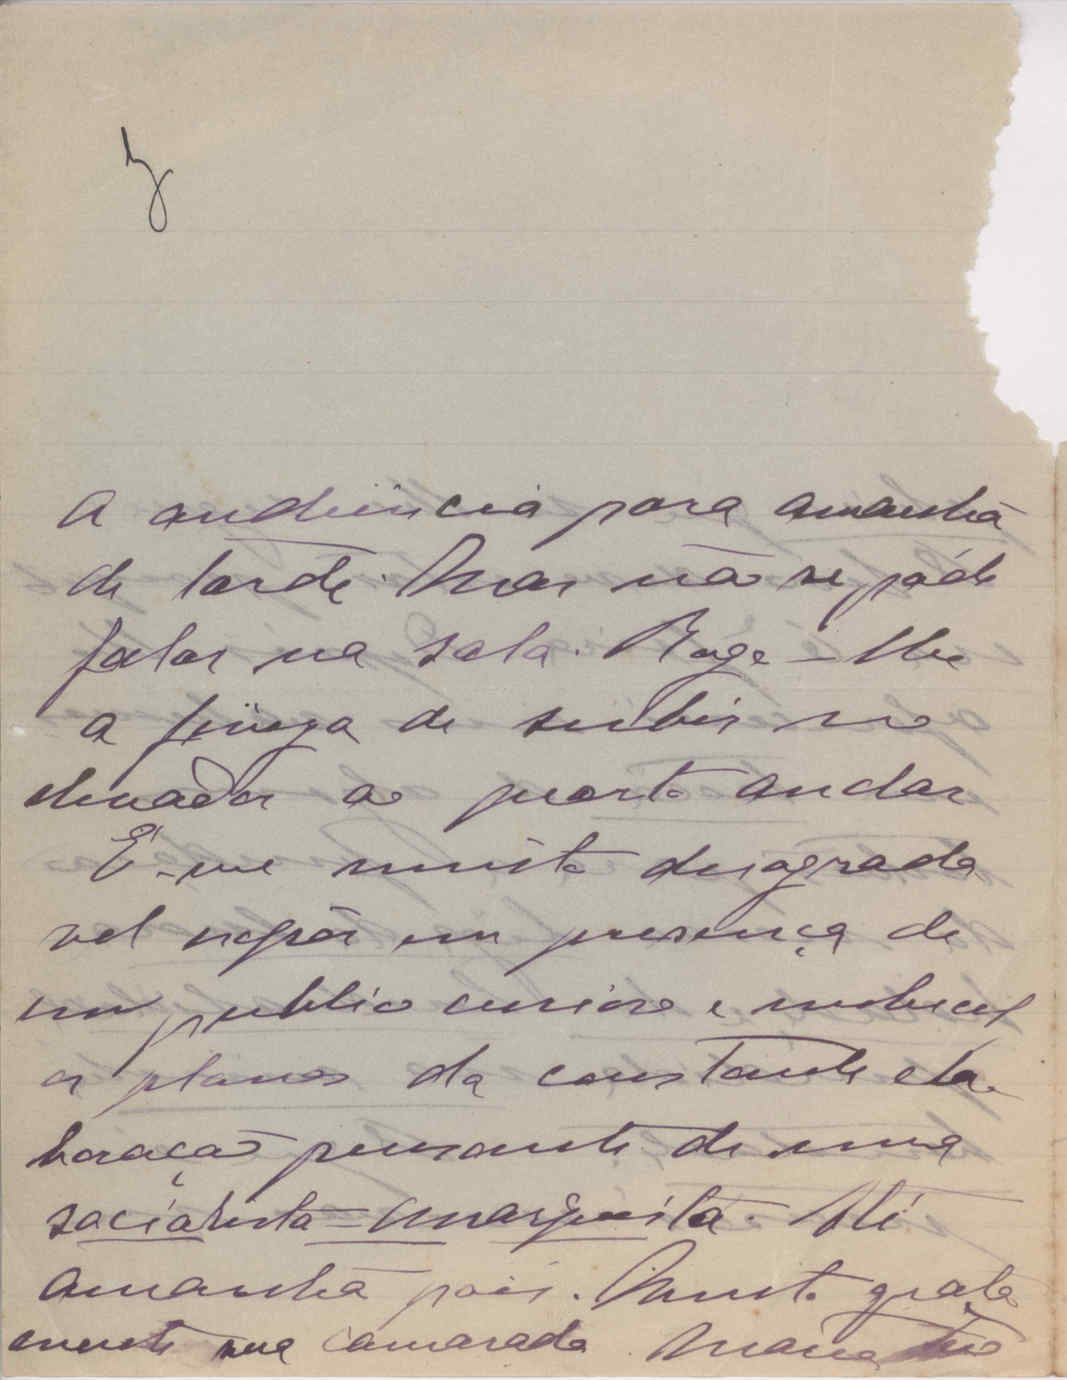 A audiencia para amanhã
de tarde. Mas não se póde
falar na sala. Roga-lhe
a fineza de subir no
elevador ao quarto andar
É-me muito desagrada
vel expôr em presença de
um publico curioso e imbecil
os planos da constante ela-
boração pensante de uma
socialista-anarquista. Até
amanhã pois. Muito grata
mente sua camarada Maria